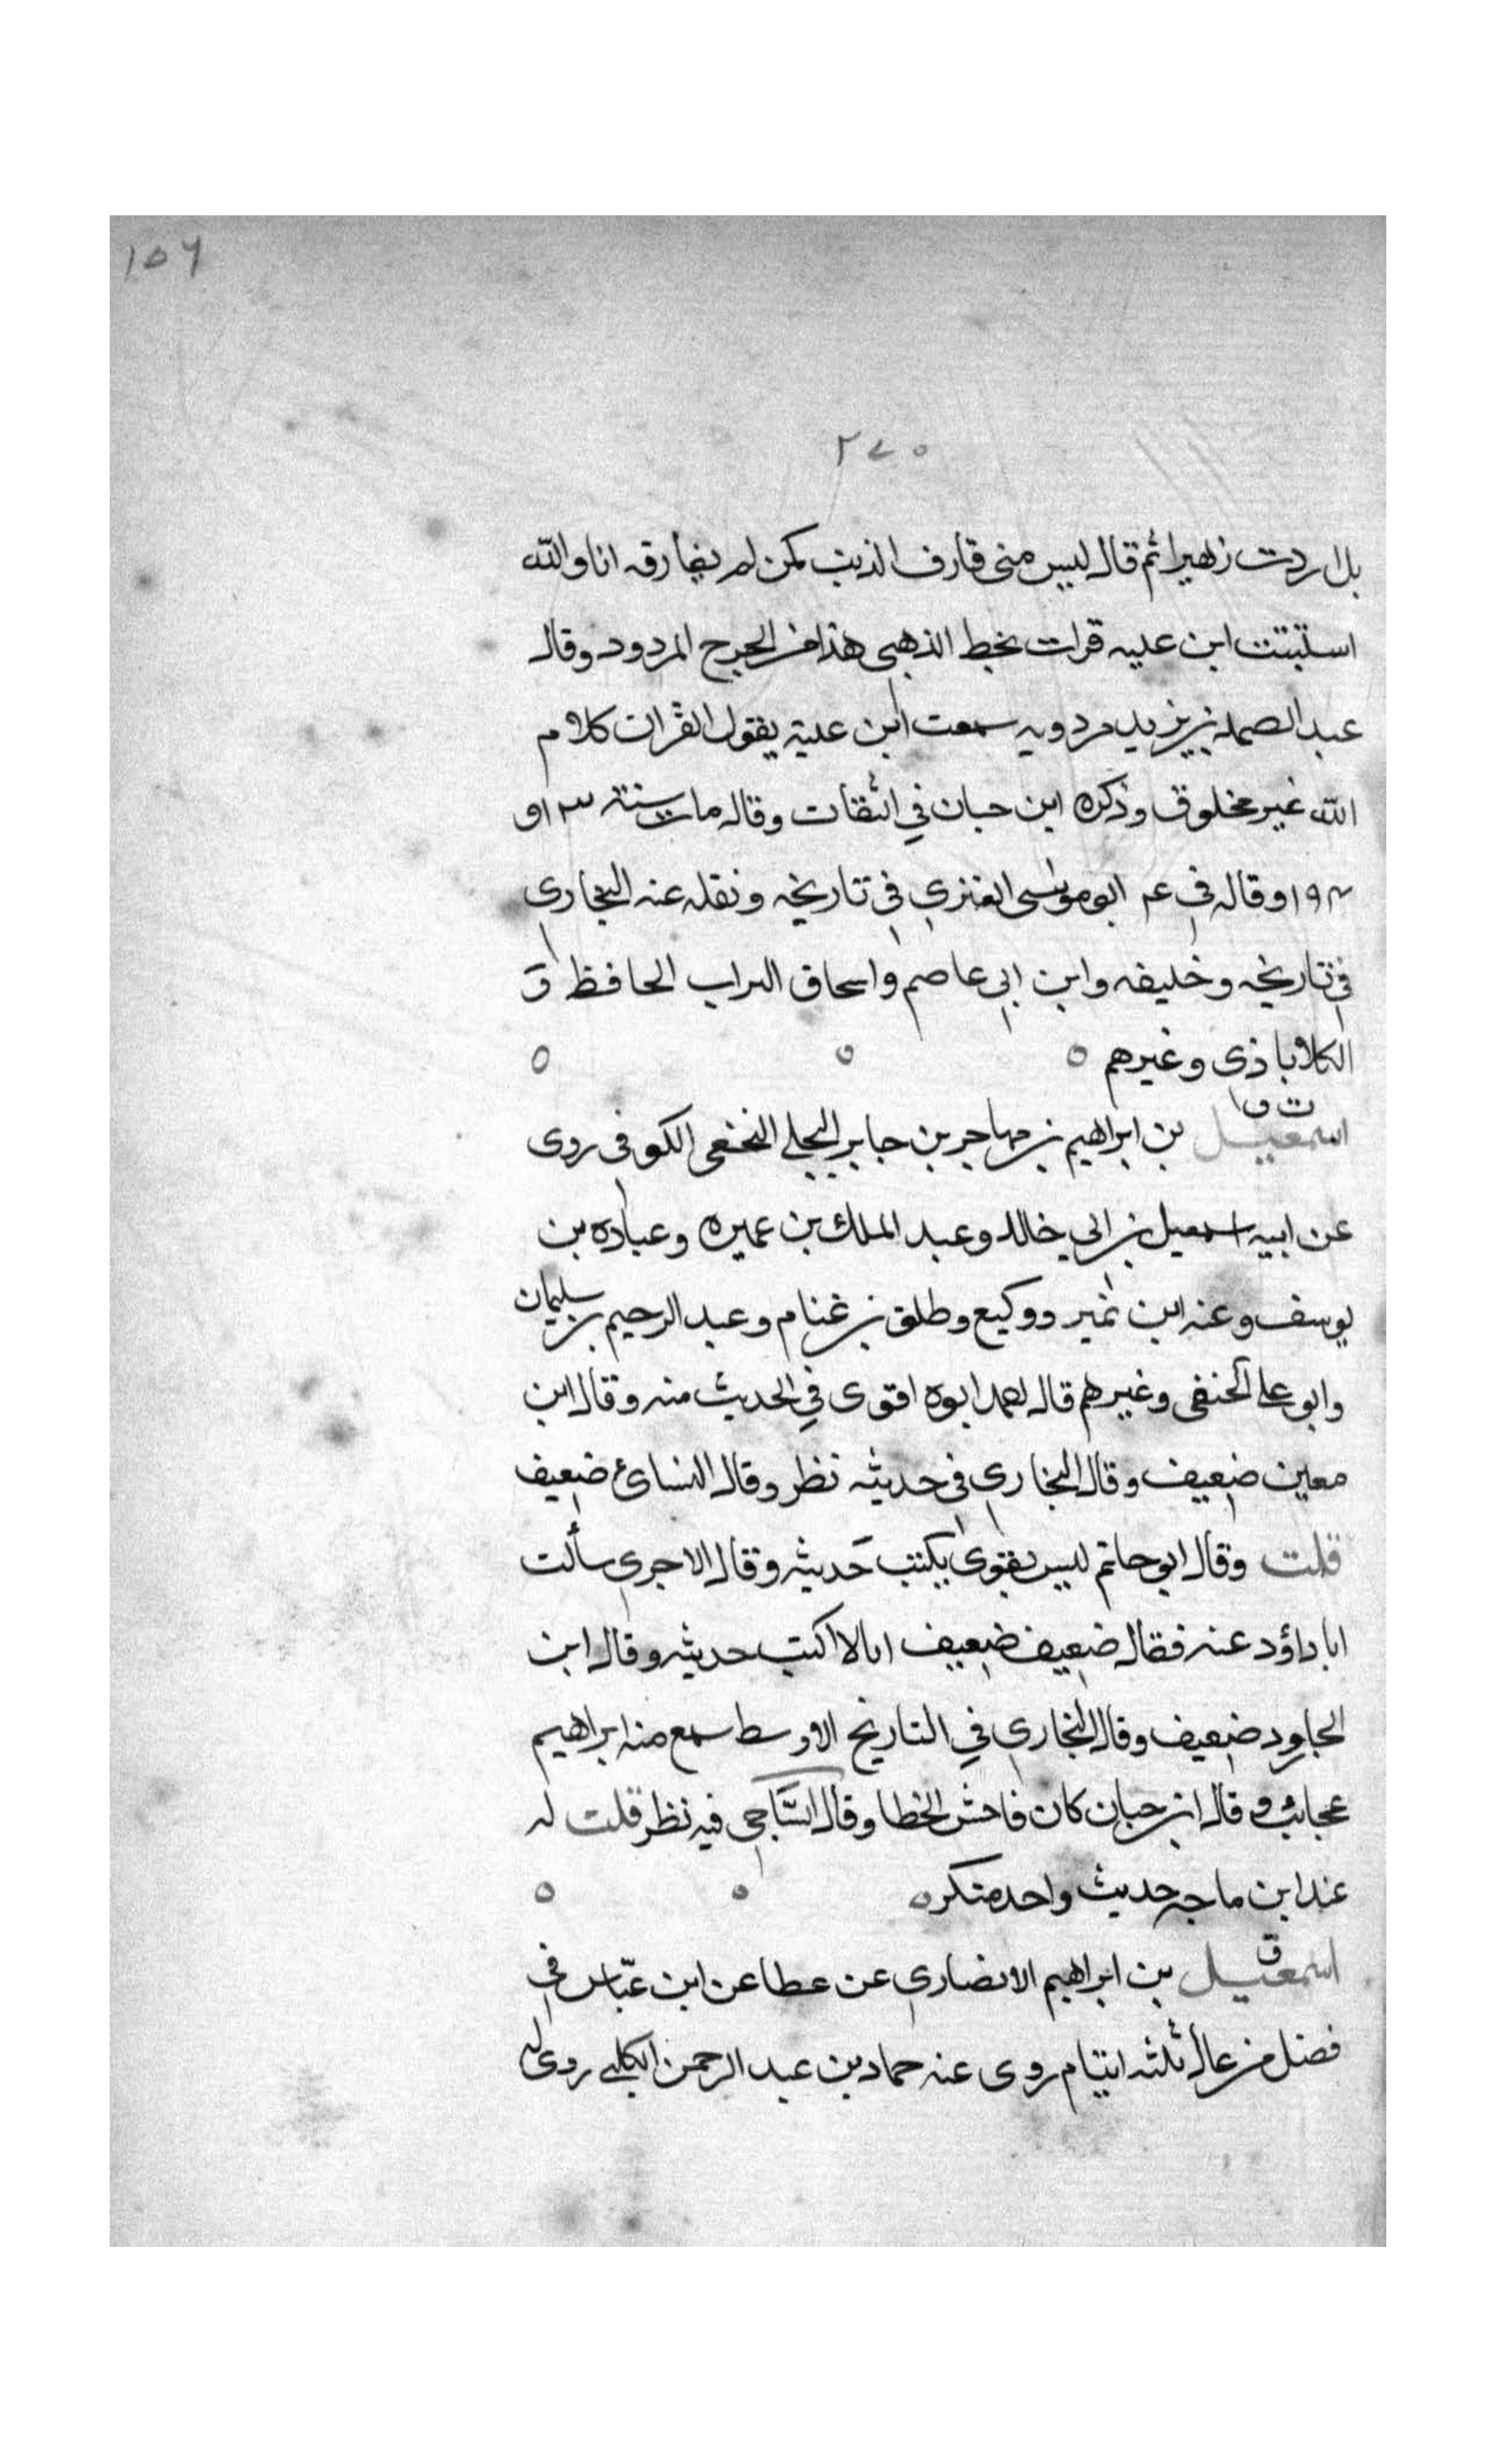 ١٥٦
٢٧٥
بل اردت زهيرا ثم قال ليس من قارف الذنب كمن لم يفارقه انا والله
استتبت ابن عليه قرات بخط الذهبي هذا من الجرح المردود وقال
عبد الصمد بن يزيد مردويه سمعت ابن علية يقول القران كلام
الله غير مخلوق وذكره ابن حبان في الثقات وقال مات سنة ٣ او
١٩٤ وقال في ع ابو موسى العنزي في تاريخه ونقله عنه البخاري
في تاريخه وخليفه وابن ابي عاصم واسحاق القراب الحافظ و
الكلاباذى وغيرهم
ت ق
اسمعيل بن ابراهيم بن مهاجر بن جابر البجلي النخعي الكوفي روى
عن ابيه اسمعيل بن ابي خالد وعبد الملك بن عميره وعباده بن
يوسف وعنه ابن نمير ووكيع وطلق بن غنام وعبد الرحيم بن سليمان
وابو علي الحنفي وغيرهم قال احمد ابوه اقوى في الحديث منه وقال ابن
معين ضعيف وقال البخاري في حديثه نظر وقال النساى ضعيف
قلت وقال ابو حاتم ليس بقوى يكتب حديثه وقال الاجري سألت
ابا داؤد عنه فقال ضعيف ضعيف انا لا اكتب حديثه وقال ابن
الجاورد ضعيف وقال البخاري في التاريخ الاوسط سمع منه ابراهيم
عجائب وقال ابن حبان كان فاحش الخطا وقال السّاجي فيه نظر قلت له
عند ابن ماجه حديث واحد منكر
ق
اسمعيل بن ابراهيم الانصاري عن عطا عن ابن عبّاس في
فضل من عال ثلثه ايتام روى عنه حماد بن عبد الرحمن الكلبي روى له